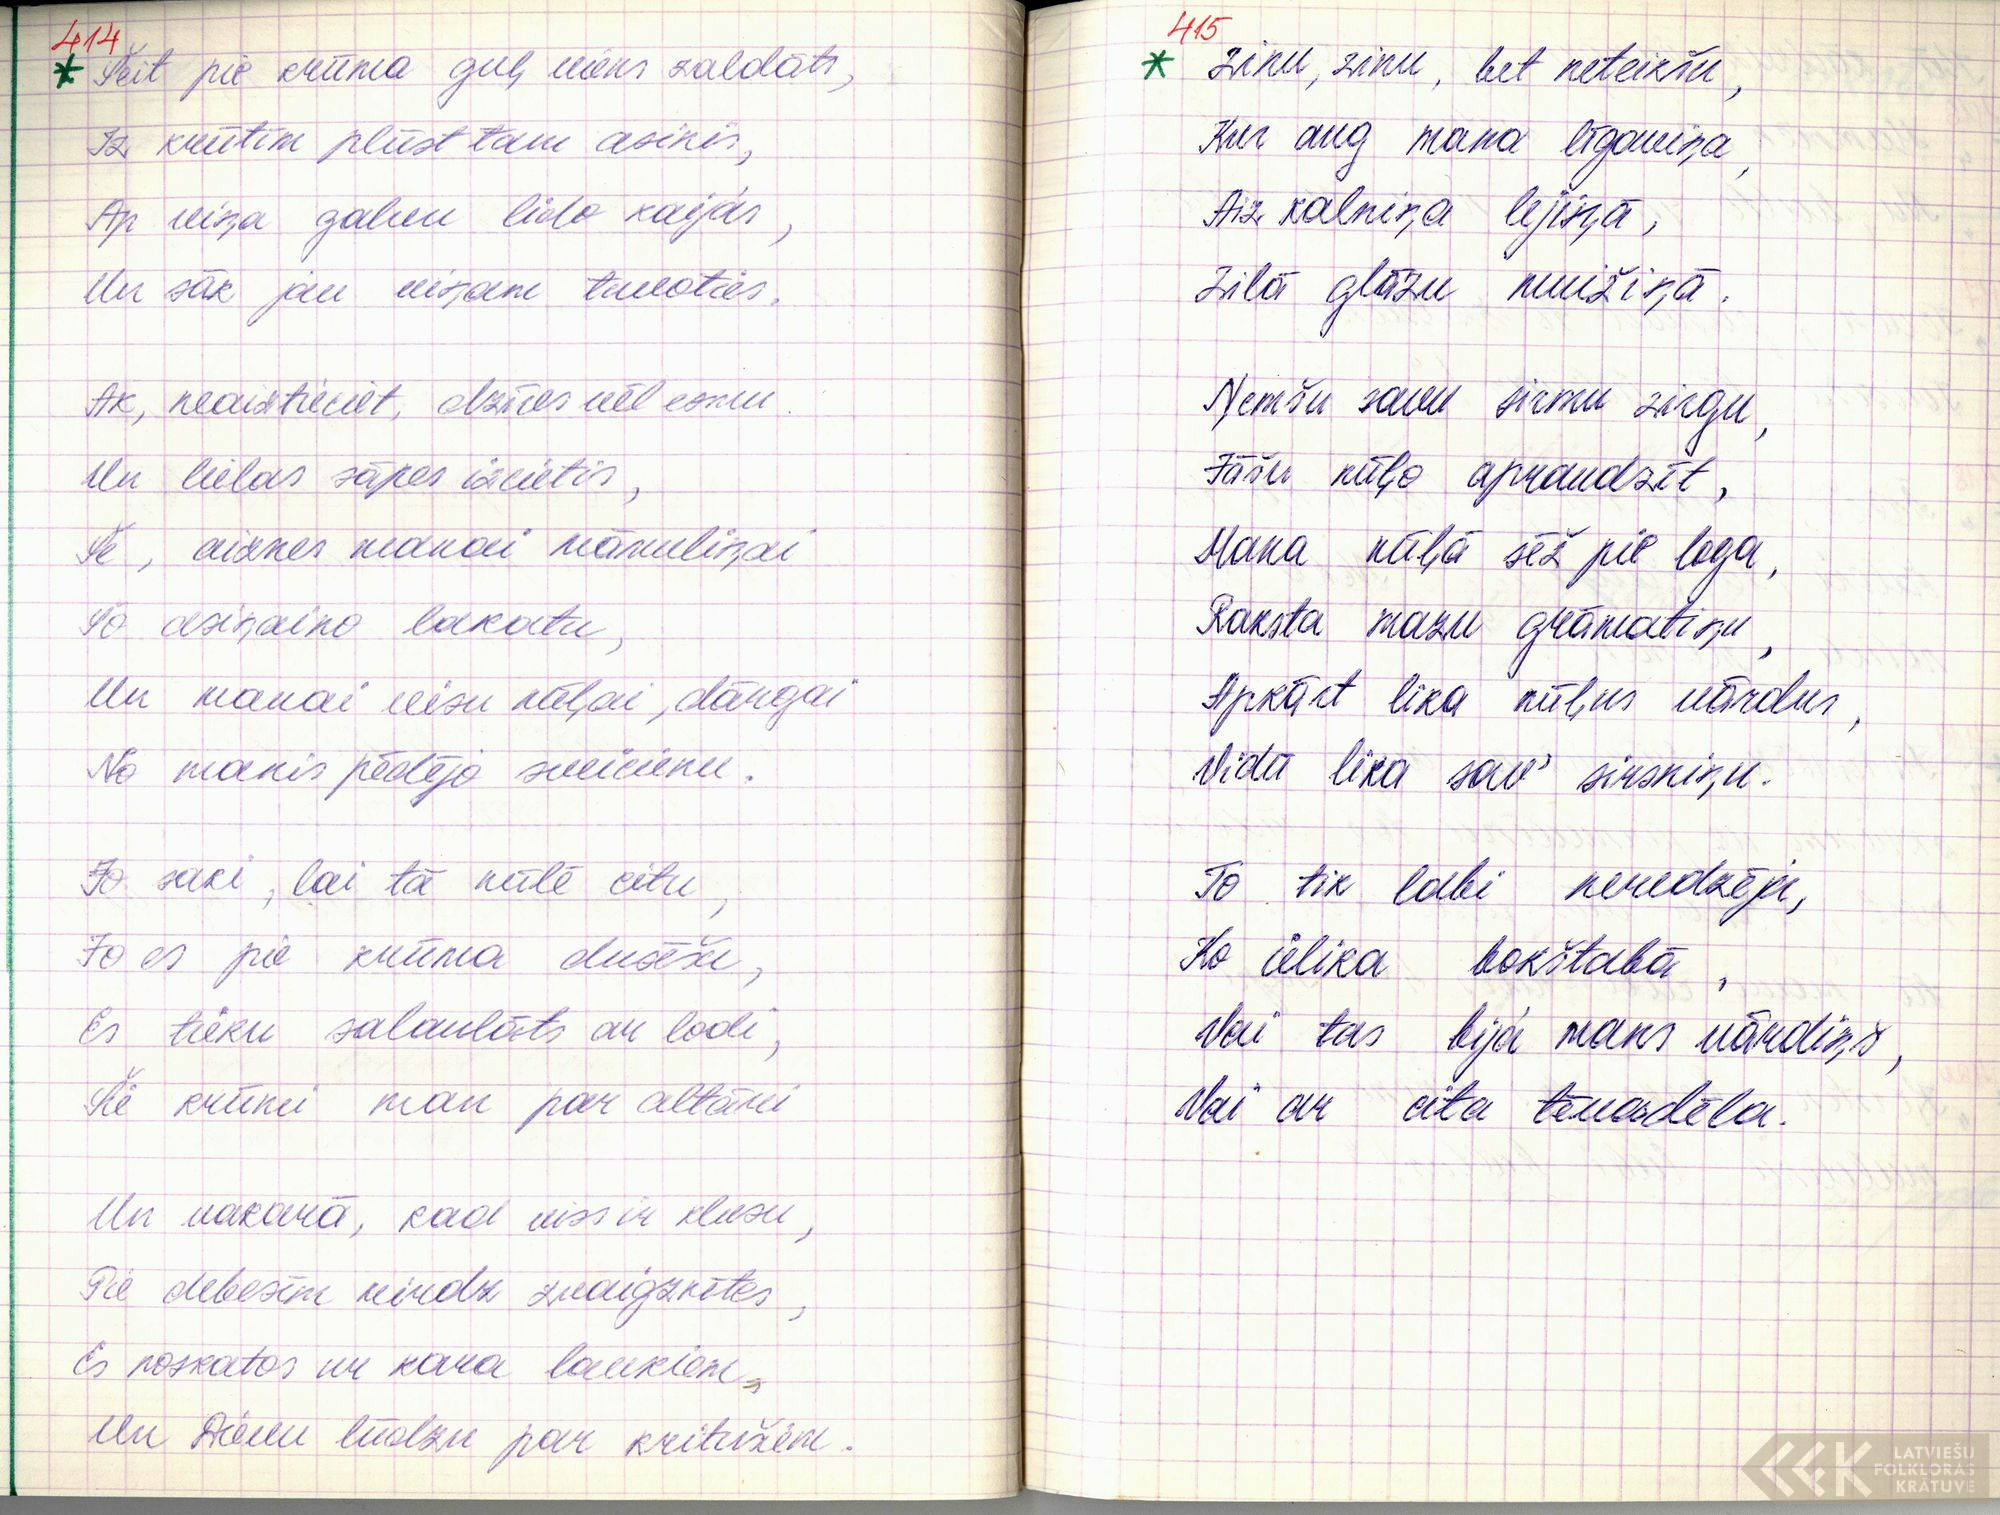 414
* Šeit pie krūma guļ viens zaldāts,
Iz krūtīm plūst tam asinis,
Ap viņa galvu lido kaijas,
Un sāk jau viņam tuvoties.
Ak, neaiztieciet, dzīvs vēl esmu.
Un lielas sāpes izcietis,
Še, aiznes manai māmuliņai
Šo asiņaino lakatu,
Un manai visu mīļai, dārgai
No manis pēdējo sveicienu.
To saki, lai tā mīlē citu,
Jo es pie krūma dusēšu,
Es tieku salaulāts ar lodi,
Šie krūmi man par altāri
Un vakarā, kad viss ir klusu,
Pie debesīm mirdz zvaigznītes,
Es noskatos ur kara laukiem,
Un Dievu lūdzu par kritušiem.
415
* Zinu, zinu, bet neteikšu,
Kur aug mana līgaviņa,
Aiz kalniņa lejiņā,
Zilā glāzu muižiņā.
Ņemšu savu sirmu zirgu,
Jāšu mīļo apraudzīt,
Mana mīļā sēž pie loga,
Raksta mazu grāmatiņu,
Apkārt lika mīļus vārdus,
Vidū lika sav' sirsniņu.
To tik labi neredzēja,
Ko ielika bokštabā,
Vai tas bija mans vārdiņš,
Vai ar cita tēvadēla.
LATVIEŠU
FOLKLORAS
KRĀTUVE